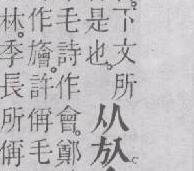 下文所
是也。
从㫃
毛詩作會。鄭
作旝。許偁毛
林。季長所偁